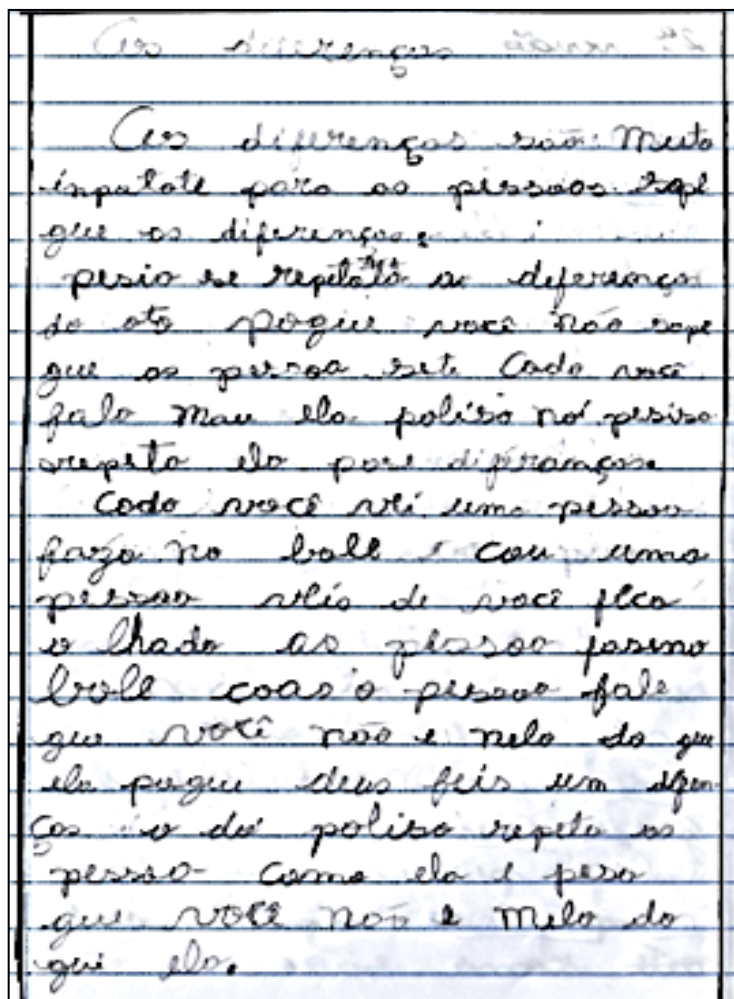 As diferenças
As diferenças são muto
inpatate para as pessoas sape
que as diferenças
pesio se repitata a diferença
do oto pogue você não sape
que as pessoa set. Cado você
fala mau ela poliso no pesiso
repeta ela pose diferanças
Cado você vei uma pessoa
fazo no bole cou uma
pessoa veis de você fica
o lhado as pessoa fasino
bole coas o pessoa fale
que você não e melo do que
ela pogue deus feis um difen
ças o da poliso repeta as
pessoa como ela e pesa
que você não e melo do
que ela.